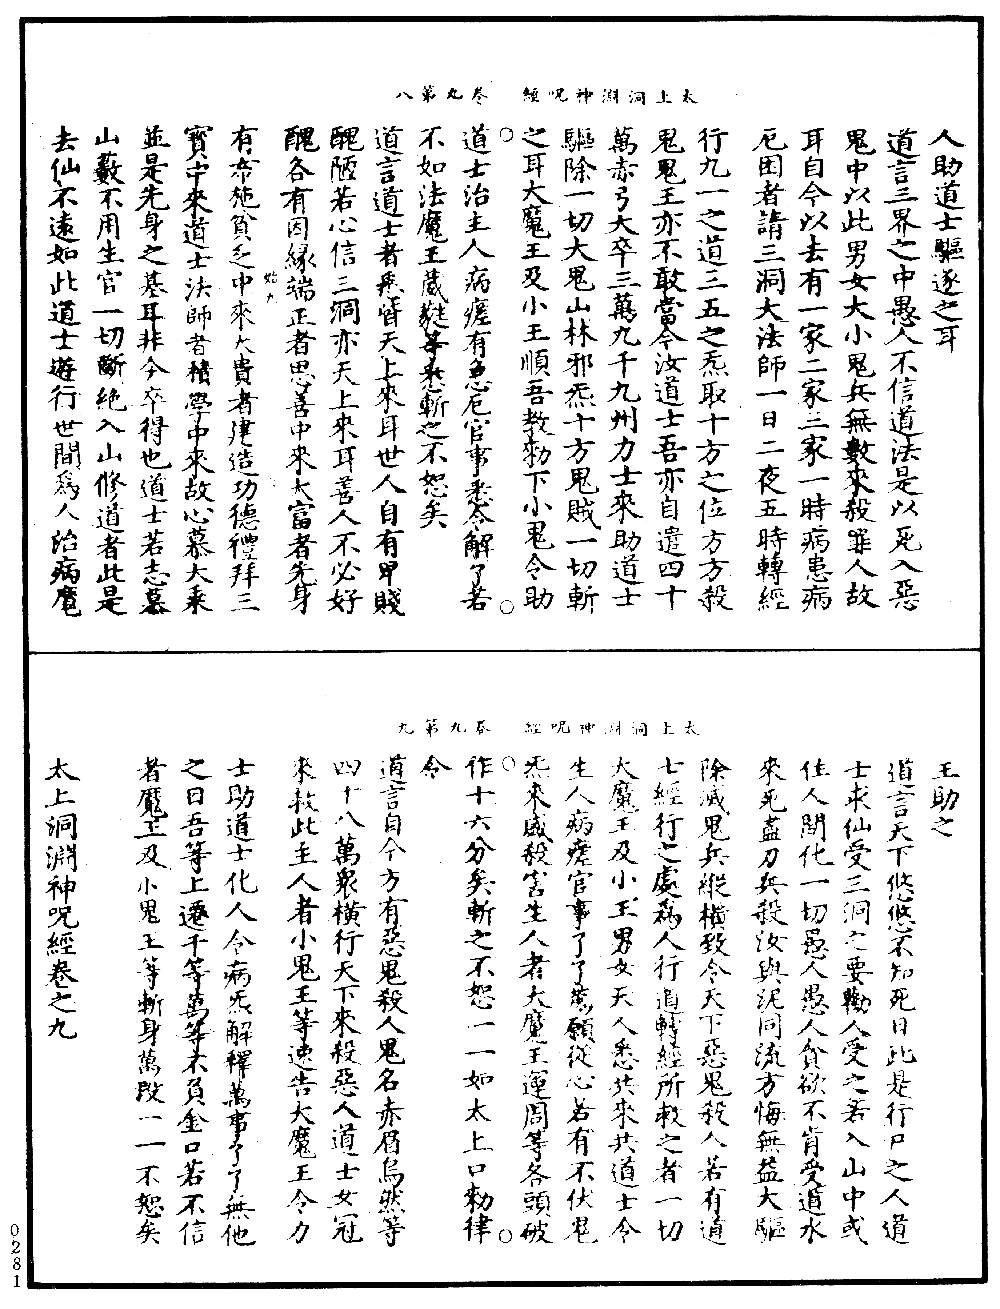 太上洞淵神呪經　卷九第八
人助道士驅逐之耳
道言三界之中愚人不信道法是以死入惡
鬼中以此男女大小鬼兵無數來殺罪人故
耳自今以去有一家二家三家一時病患病
厄困者請三洞大法師一日二夜五時轉經
行九一之道三五之炁取十方之位方方殺
鬼鬼王亦不敢當令汝道士吾亦自遣四十
萬赤弓大卒三萬九千九州力士來助道士
驅除一切大鬼山林邪炁十方鬼賊一切斬
之耳大魔王及小王順吾教勑下小鬼令助
道士治主人病瘥有急厄官事悉令解了若
不如法魔王葴䶮等悉斬之不恕矣
道言道士者悉皆天上來耳世人自有卑賤
醜陋若心信三洞亦天上來耳善人不必好
醜各有因緣端正者思善中來大富者先身
有布施貧乏中來大貴者建造功德禮拜三
寶中來道士法師者積學中來故心慕大乘
並是先身之基耳非今卒得也道士若志慕
山藪不用生官一切斷絕入山修道者此是
去仙不遠如此道士遊行世間爲人治病魔
太上洞淵神呪經　卷九第九
王助之
道言天下悠悠不知死日此是行尸之人道
士求仙受三洞之要勸人受之若入山中或
住人間化一切愚人愚人貪欲不肯受道水
來死盡刀兵殺汝與泥同流方悔無益大驅
除滅鬼兵縱橫致令天下惡鬼殺人若有道
七經行之處爲人行道轉經所救之者一切
大魔王及小王男女天人悉共來共道士令
生人病瘥官事了了萬願從心若有不伏鬼
炁來威殺害生人者大魔王運周等各頭破
作十六分矣斬之不恕一一如太上口勑律
令
道言自今方有惡鬼殺人鬼名赤眉烏然等
四十八萬衆橫行天下來殺惡人道士女冠
來救此主人者小鬼王等速告大魔王令力
士助道士化人令病炁解釋萬事了了無他
之日吾等上遷千等萬等不負金口若不信
者魔王及小鬼王等斬身萬段一一不恕矣
太上洞淵神呪經卷之九
0281